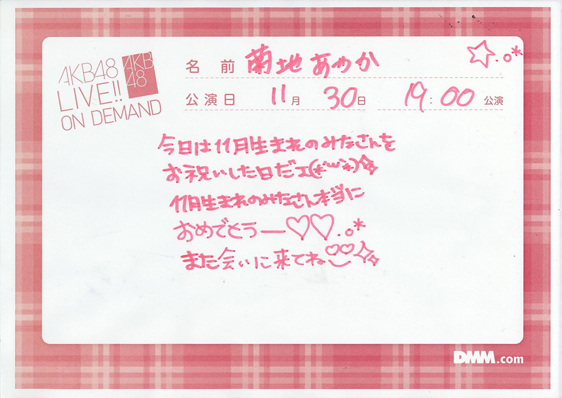 AKB48
LIVE!!
ON DEMAND
AKB
48
名前 菊地あやか
公演日 11月 30日 19:00 公演
今日は11月生まれのみなさんを
お祝いした日だヱ(*´ω`*)☆
11月生まれのみなさん本当に
おめでとうー♡♡.。*
また会いに来てね♡♡☆☆
DMM.com